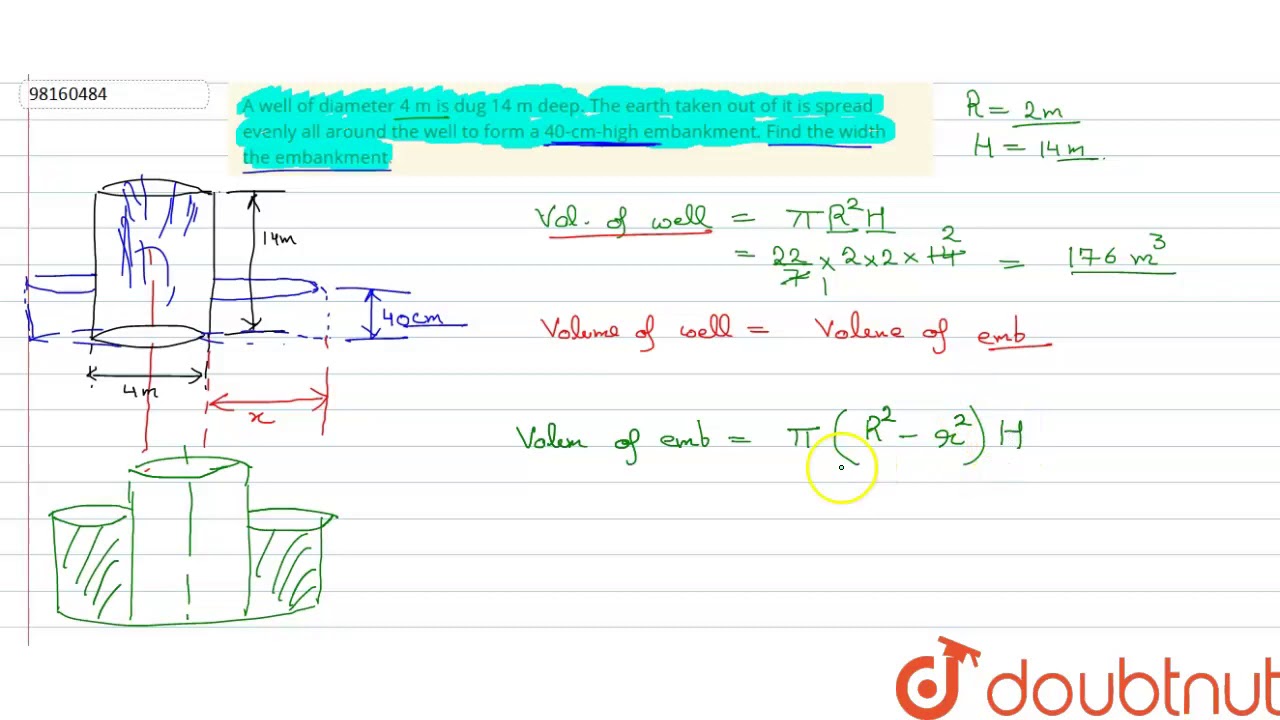 98160484
A well of diameter 4 m is dug 14 m deep. The earth taken out of it is spread
evenly all around the well to form a 40-cm-high embankment. Find the width
the embankment
R = 2m
H = 14m.
Vol. of well = πR²H
= 22/7 × 2 × 2 × 14 = 176 m³
2
1
Volume of well = Volume of emb
Volum of emb = π(R² - r²)H
14m
40cm
4m
x
doubtnut